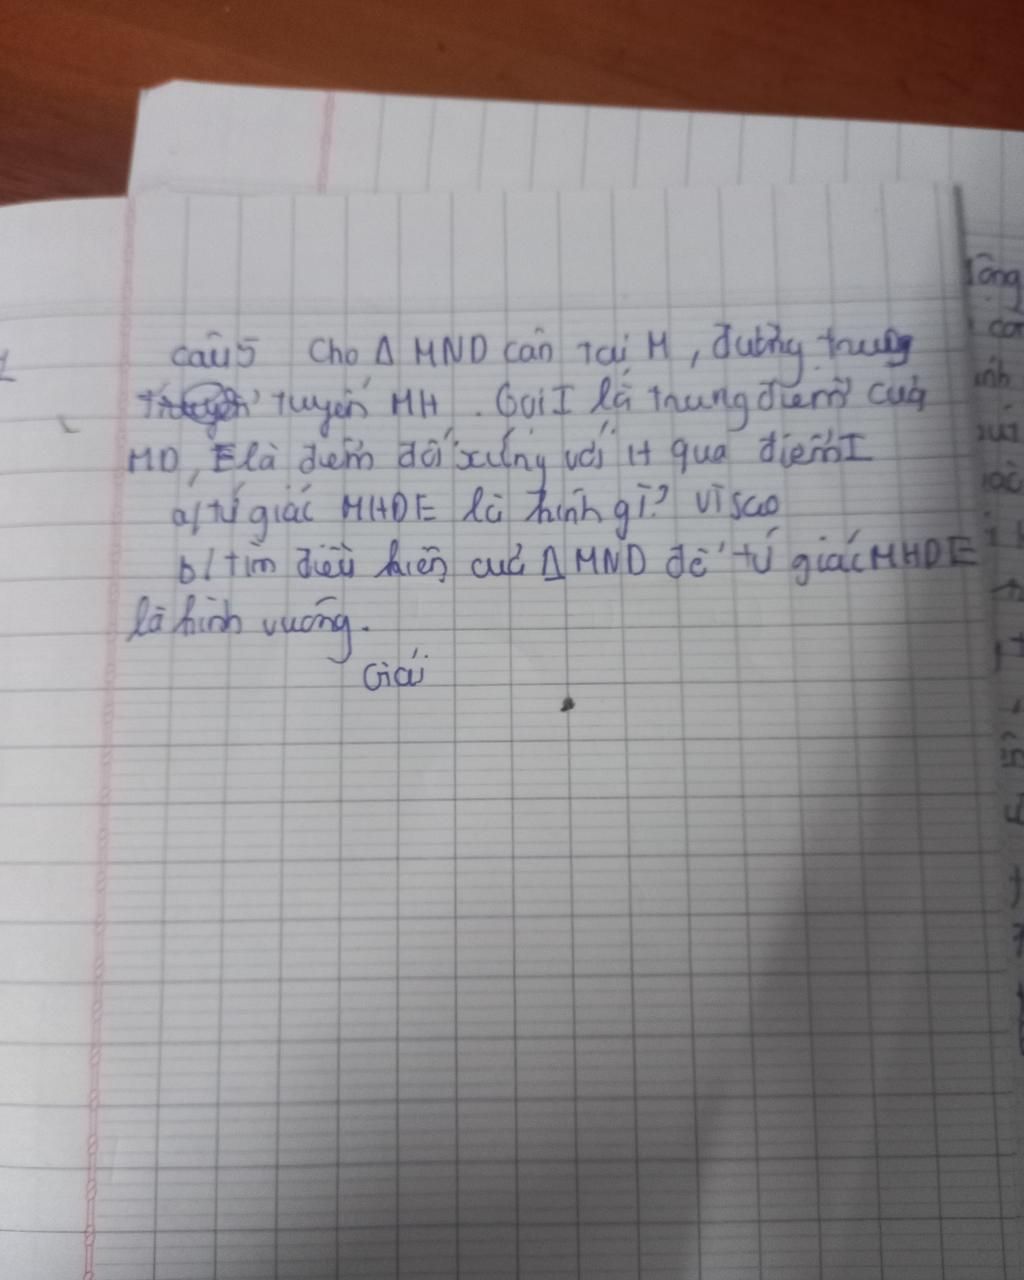 câu5 Cho Δ MND cân tại M, đường trung
tuyến MH. Gọi I là trung điểm của
MD, E là điểm đối xứng với H qua điểm I
a/ tứ giác MHDE là hình gì? Vì sao
b/ tìm điều kiện của Δ MND để tứ giác MHDE
là hình vuông.
Giải